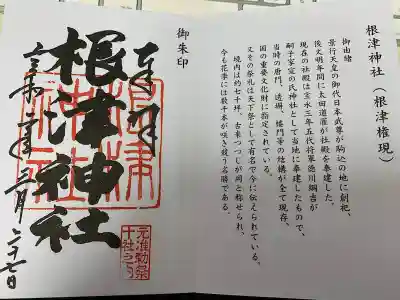 根津神社(根津権現)
御由緒
景行天皇の御代日本武尊が駒込の地に創祀、
後文明年間に太田道灌が社殿を奉建した。
現在の社殿は宝永三年五代将軍徳川綱吉が
嗣子家宣の氏神社として当地に奉建したもので、
当時の唐門、透塀、楼門等の結構が全て現存、
国の重要文化財に指定されている。
又その祭礼は天下祭として有名で今に伝えられている。
境内は約七千坪、古来つつじが岡と称せられ、
今も花季には数千本が咲き競う名勝である。
御朱印
奉拝
根津神社
二年三月二十七日
元准勅祭
十社之内